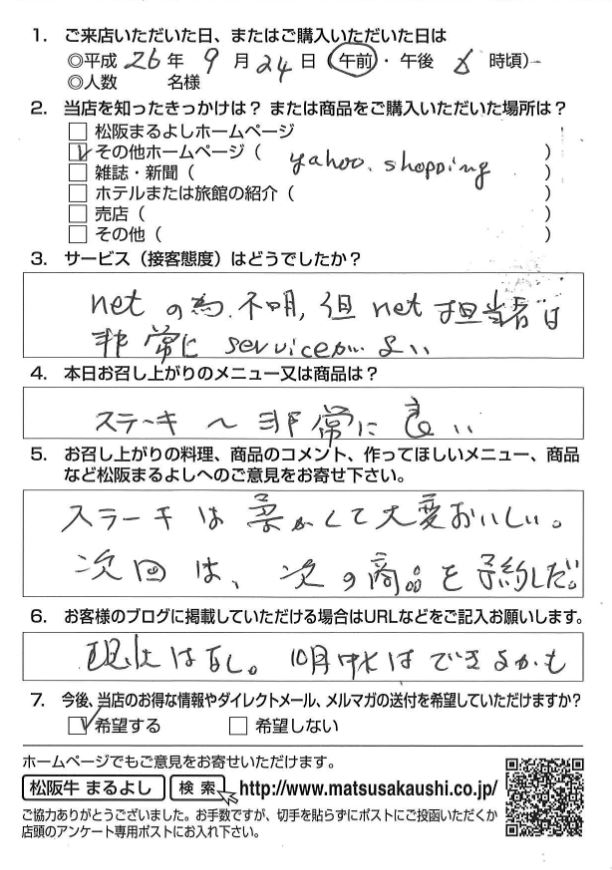 1. ご来店いただいた日、またはご購入いただいた日は
◎平成 26 年 9 月 24 日 (午前・午後 6 時頃)
◎人数 名様
2. 当店を知ったきっかけは? または商品をご購入いただいた場所は?
松阪まるよしホームページ
その他ホームページ ( yahoo. shopping )
雑誌・新聞 ( )
ホテルまたは旅館の紹介 ( )
売店 ( )
その他 ( )
3. サービス(接客態度)はどうでしたか?
net の為、不明, 但 net 担当者は
非常に serviceがよい
4. 本日お召し上がりのメニュー又は商品は?
ステーキ 〜 非常に良い
5. お召し上がりの料理、商品のコメント、作ってほしいメニュー、商品
など松阪まるよしへのご意見をお寄せ下さい。
ステーキは柔かくて大変おいしい。
次回は、次の商品を予約しだ。
6. お客様のブログに掲載していただける場合はURLなどをご記入お願いします。
現状はなし。10月中にはできるかも
7. 今後、当店のお得な情報やダイレクトメール、メルマガの送付を希望していただけますか?
希望する 希望しない
ホームページでもご意見をお寄せいただけます。
松阪牛 まるよし 検索 http://www.matsusakaushi.co.jp/
ご協力ありがとうございました。お手数ですが、切手を貼らずにポストにご投函いただくか
店頭のアンケート専用ポストにお入れ下さい。